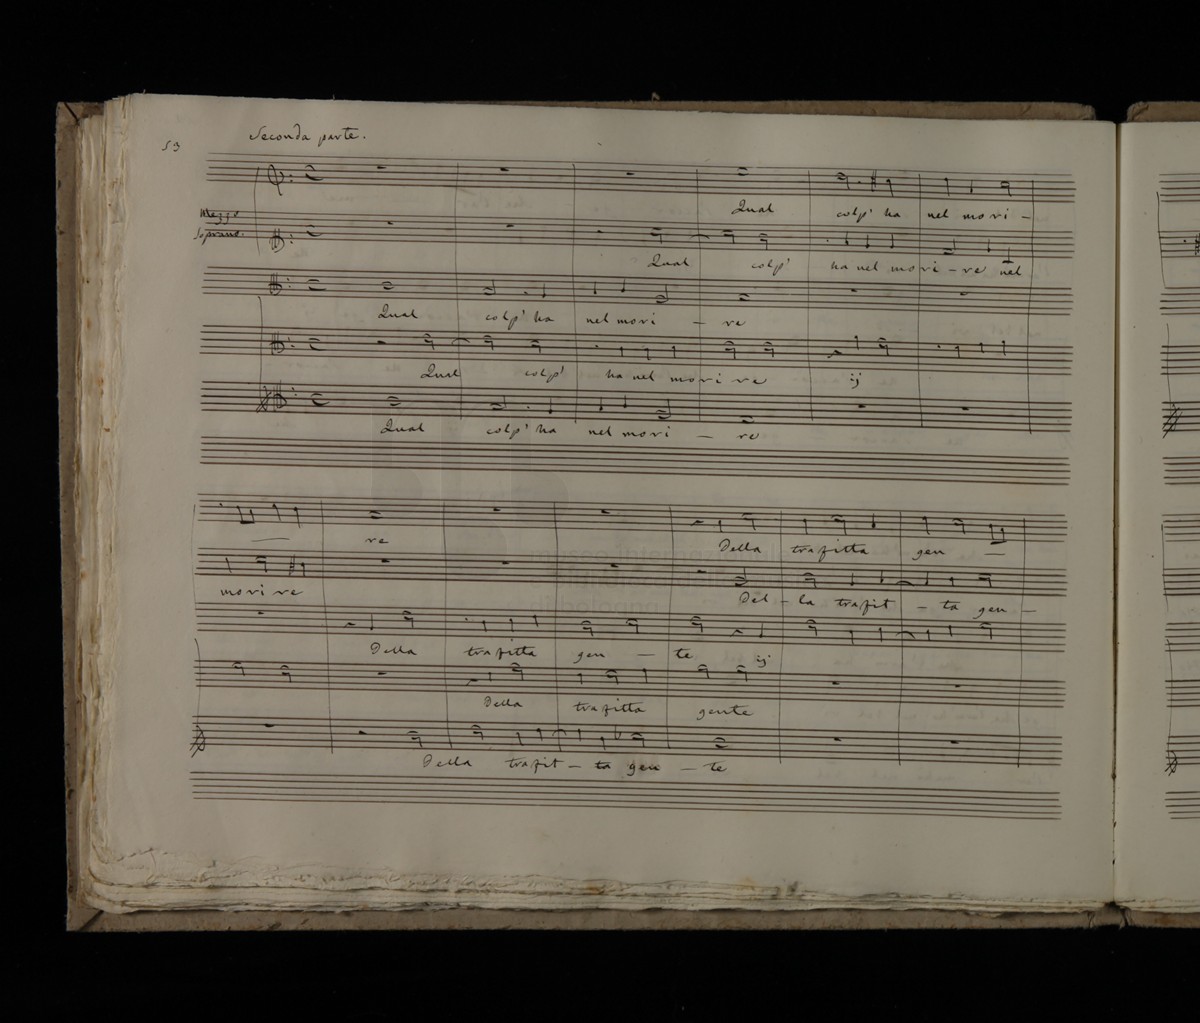 53
Seconda parte.
Qual colp' ha nel mori -
Mezzo
Soprano.
Qual colp' ha nel mori - re nel
Qual colp' ha nel mori - re
Qual colp' ha nel morire ij
Qual colp' ha nel mori - re
— re
Della trafitta gen —
morire
Del - la trafit - ta gen -
Della trafitta gen - te ij
Della trafitta gente
Della trafit - ta gen - te